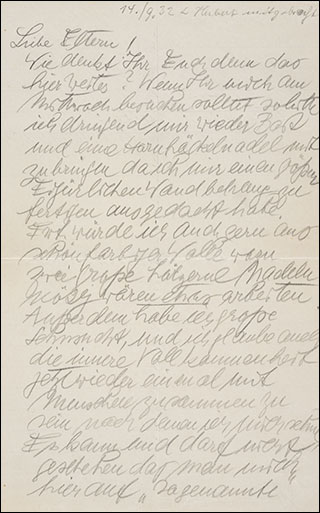 14./9.32
Liebe Eltern!
Wie denkt Ihr Euch denn das
hier weiter? Wenn Ihr mich am
Mittwoch besuchen solltet so bitte
ich dringend mir wieder Bast
und eine starke nadel mit
zubringen da ich mir einen größeren
Wandbehang zu
fertigen ausgedacht habe.
würde ich auch gern aus
schönfarbger Wolle wozu
zwei große hölzerne Nadeln
nötig wären etwas arbeiten
Außerdem habe ich große
Sehnsucht und ich glaube auch
die innere Vollkommenheit
jetzt wieder einmal mit
Menschen zusammen zu
sein nach denen ich mich sehne
Es kann und darf nicht
geschehen das man mich
hier auf „sogenannte